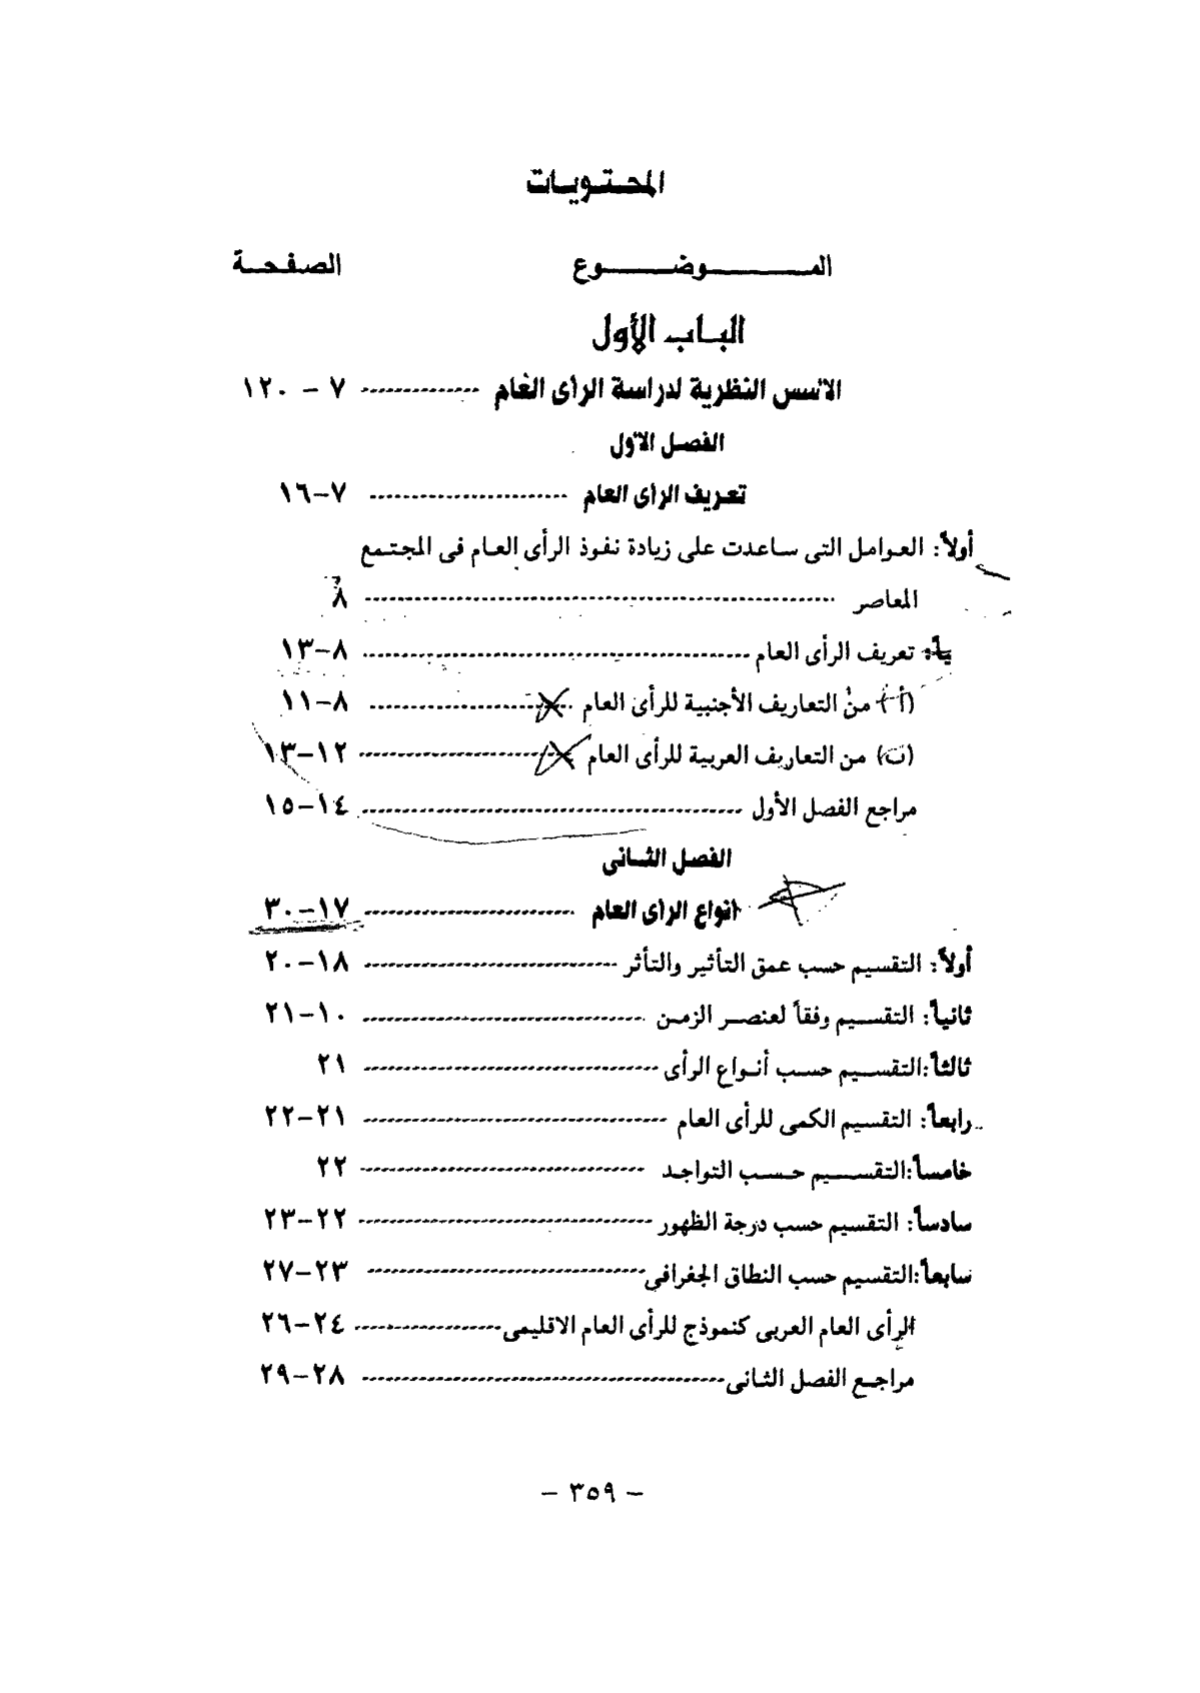 المحتويات
الموضوع الصفحة
الباب الأول
الأسس النظرية لدراسة الرأى العام ------------- ٧ - ١٢٠
الفصل الأول
تعريف الرأى العام ------------- ٧-١٦
أولاً: العوامل التى ساعدت على زيادة نفوذ الرأى العام فى المجتمع
المعاصر ------------- ٨
تعريف الرأى العام ------------- ٨-١٣
(أ) من التعاريف الأجنبية للرأى العام ------------- ٨-١١
(ب) من التعاريف العربية للرأى العام ------------- ١٢-١٣
مراجع الفصل الأول ------------- ١٤-١٥
الفصل الثانى
أنواع الرأى العام ------------- ١٧-٣٠
أولاً: التقسيم حسب عمق التأثير والتأثر ------------- ١٨-٢٠
ثانياً: التقسيم وفقاً لعنصر الزمن ------------- ١٠-٢١
ثالثاً: التقسيم حسب أنواع الرأى ------------- ٢١
رابعاً: التقسيم الكمى للرأى العام ------------- ٢١-٢٢
خامساً: التقسيم حسب التواجد ------------- ٢٢
سادساً: التقسيم حسب درجة الظهور ------------- ٢٢-٢٣
سابعاً: التقسيم حسب النطاق الجغرافى ------------- ٢٣-٢٧
الرأى العام العربى كنموذج للرأى العام الاقليمى ------------- ٢٤-٢٦
مراجع الفصل الثانى ------------- ٢٨-٢٩
- ٣٥٩ -